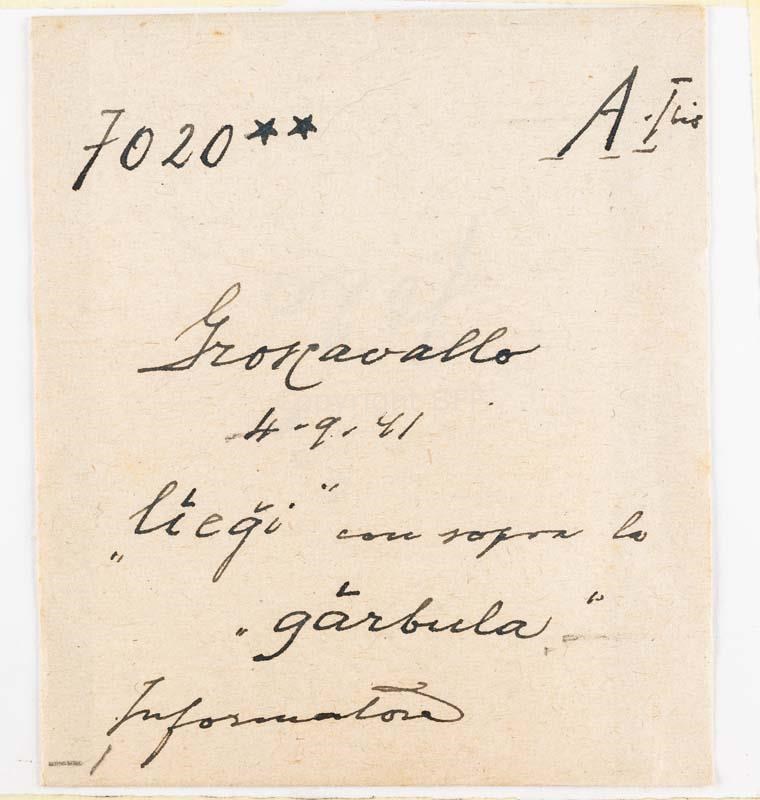 7020** A. I bis
Groscavallo
4-9.41
„lìeği" con sopra la
„gàrbula"
Informatore